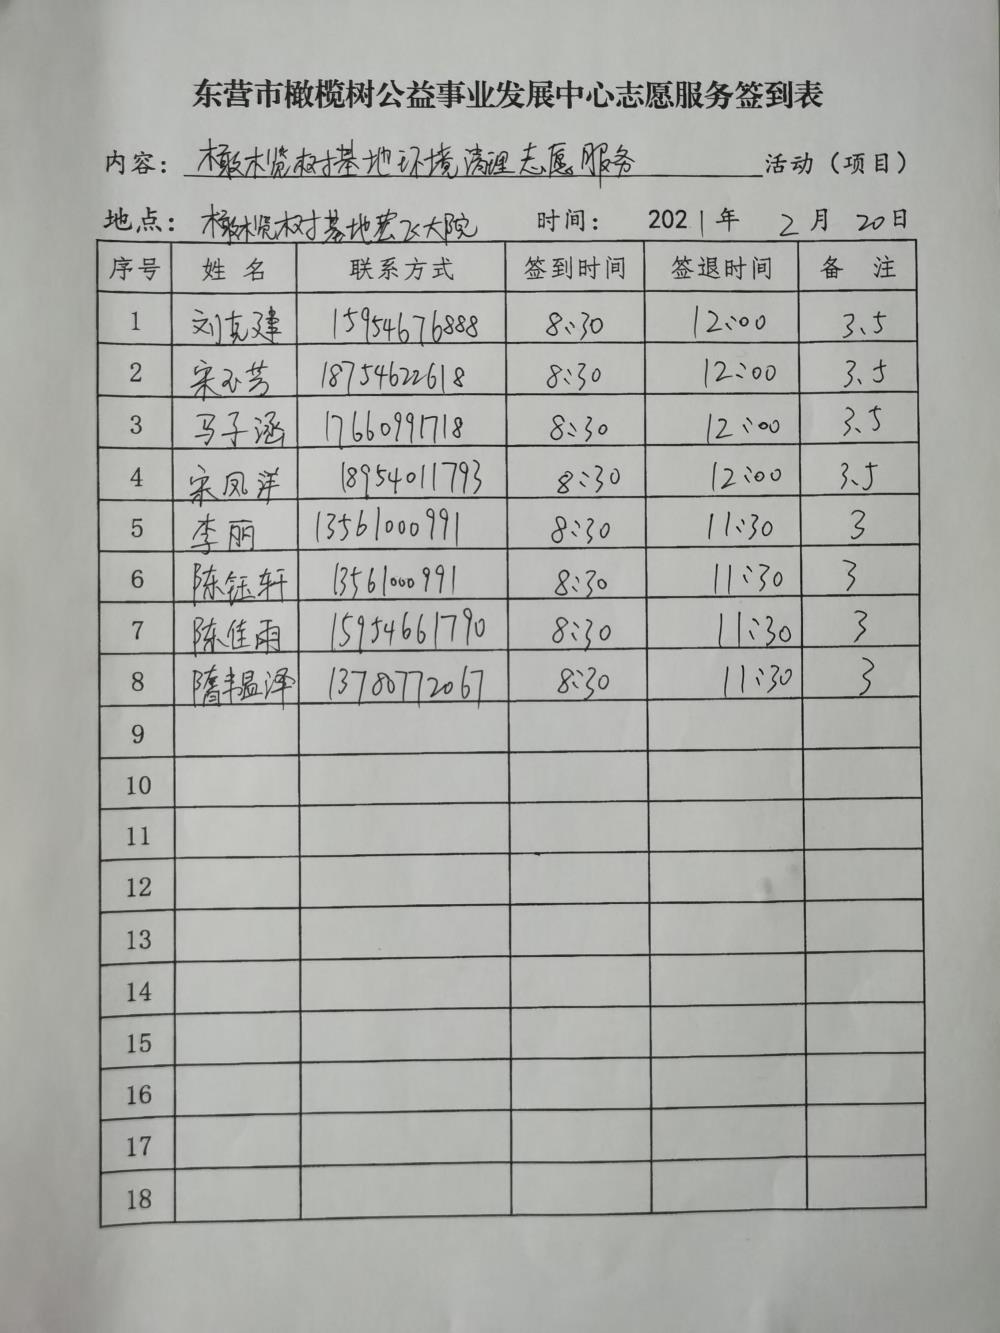 东营市橄榄树公益事业发展中心志愿服务签到表
内容： 橄榄树基地环境清理志愿服务 活动（项目）
地点： 橄榄树基地宏飞大院 时间： 2021年 2月 20日
序号 姓名 联系方式 签到时间 签退时间 备 注
1 刘克建 15954676888 8:30 12:00 3.5
2 宋玉芳 18754622618 8:30 12:00 3.5
3 马子涵 17660991718 8:30 12:00 3.5
4 宋凤洋 18954011793 8:30 12:00 3.5
5 李丽 13561000991 8:30 11:30 3
6 陈钰轩 13561000991 8:30 11:30 3
7 陈佳雨 15954661790 8:30 11:30 3
8 隋韫泽 13780772067 8:30 11:30 3
9
10
11
12
13
14
15
16
17
18